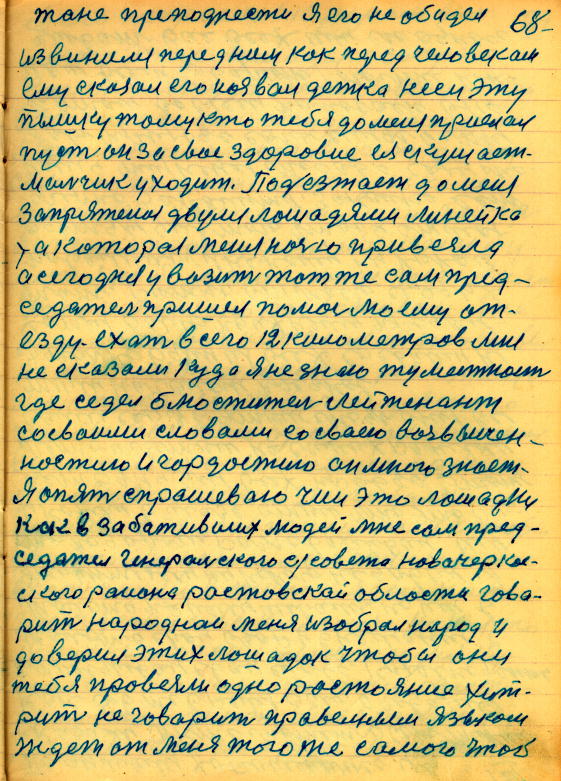 тане преподнести я его не обидел 68-
извинилы перед ним как перед человекам
ему сказал его назвал детка неси эту
пышку тому кто тебя до меня прислал
пуст он за свае здоровие ея скушает.
Малчик уходит. Подезтает до меня
запряженая двумя лошадями линейка
та которая меня ночю привезла
а сегодня увазит тот же сам пред-
седател пришел помоч моему от-
езду. ехат всего 12 километров мне
не сказали куда я не знаю ту местност
где седел блюстител лейтенант
со сваими словами со сваею возвышен-
ностию и гордостию он много знает.
Я опят спрашеваю чии это лошадки
как в забативших людей мне сам пред-
седател генералского с/совета новочеркас-
ского раиона растовской области гова-
рит народнаи меня избрал народ и
доверил этих лошадок чтобы они
тебя провезли одно растояние хит-
рит не говарит правелным языком
ждет от меня того же самого чтоб